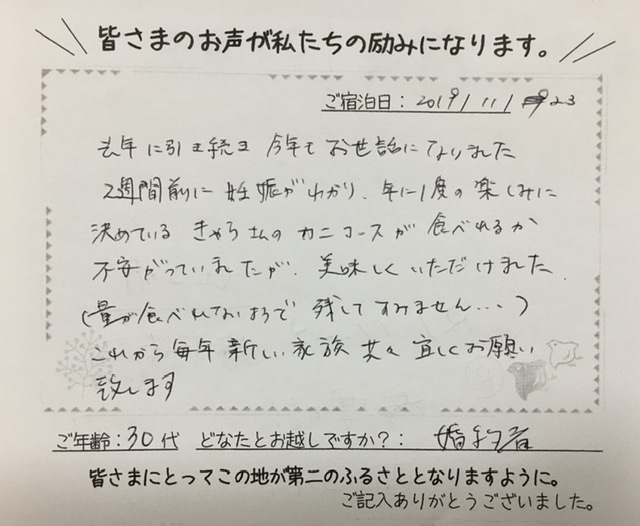 皆さまのお声が私たちの励みになります。
ご宿泊日：2019/11/23
去年に引き続き 今年も お世話になりました
2週間前に 妊娠がわかり、年に1度の楽しみに
決めている きゃら さんの カニコースが 食べれるか
不安がっていましたが、美味しくいただけました.
(量が食べれてないようで 残してすみません...)
これから毎年 新しい家族 共々 宜しくお願い
致します
ご年齢：30代 どなたとお越しですか？：婚約者
皆さまにとってこの地が第二のふるさととなりますように。
ご記入ありがとうございました。